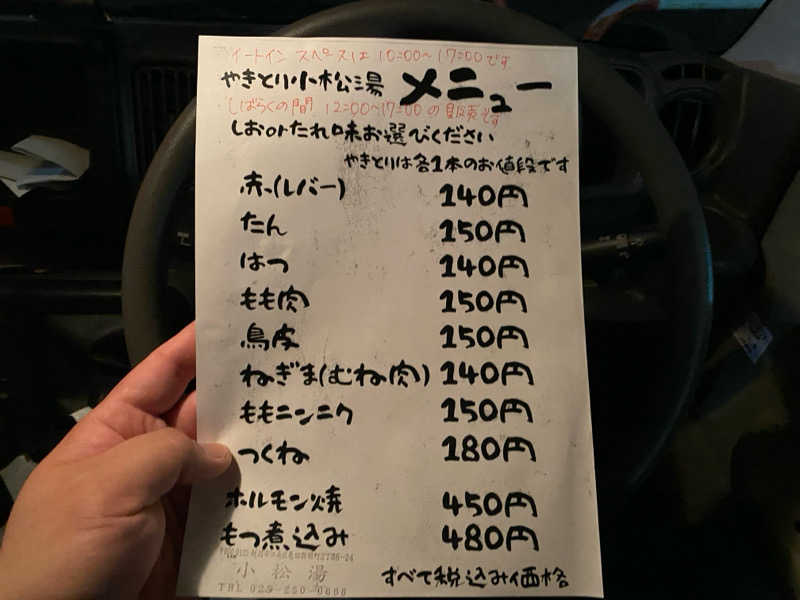 イートイン スペースは 10:00〜17:00です
やきとり小松湯 メニュー
しばらくの間 12:00〜17:00の販売です
しおorたれ味お選びください
やきとりは各1本のお値段です
赤(レバー) 140円
たん 150円
はつ 140円
もも肉 150円
鳥皮 150円
ねぎま(むね肉) 140円
ももニンニク 150円
つくね 180円
ホルモン焼 450円
もつ煮込み 480円
小松湯
すべて税込み価格
TEL 025-250-0666